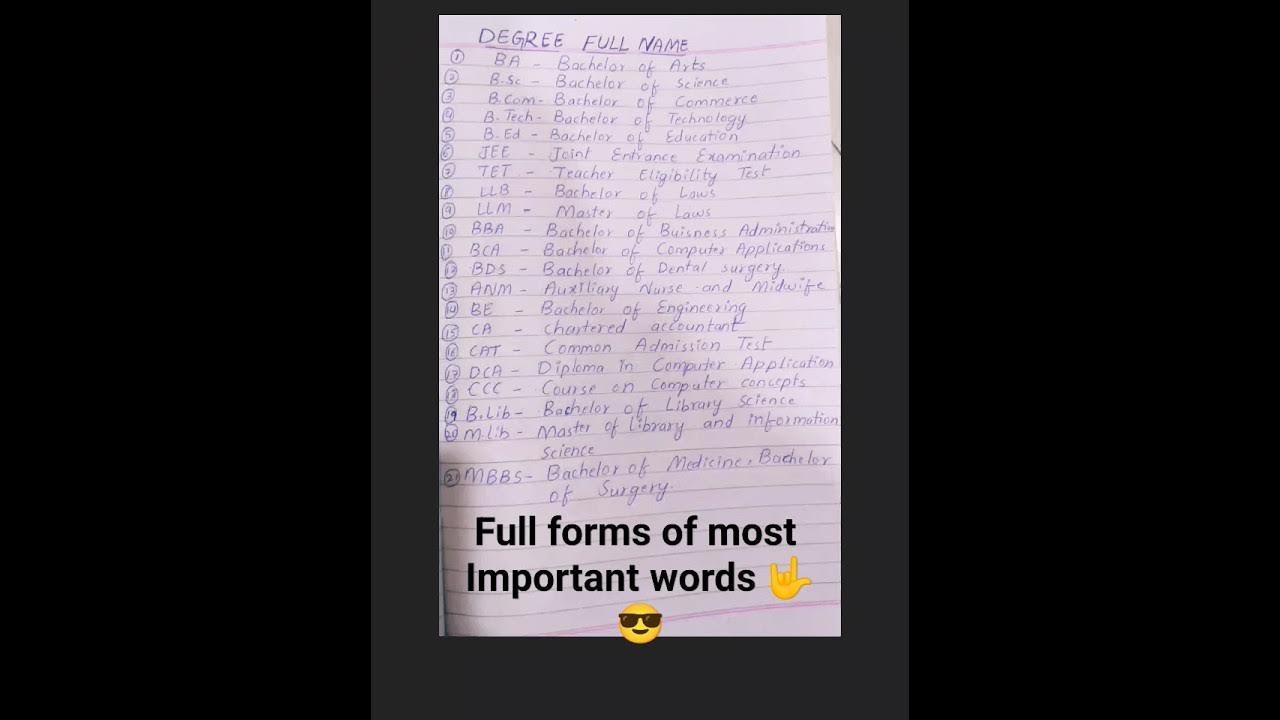 DEGREE FULL NAME
① BA - Bachelor of Arts
② B.Sc - Bachelor of Science
③ B.Com- Bachelor of Commerce
④ B.Tech- Bachelor of Technology
⑤ B.Ed - Bachelor of Education
⑥ JEE - Joint Entrance Examination
⑦ TET - Teacher Eligibility Test
⑧ LLB - Bachelor of Laws
⑨ LLM - Master of Laws
⑩ BBA - Bachelor of Buisness Administration
⑪ BCA - Bachelor of Computer Applications
⑫ BDS - Bachelor of Dental surgery.
⑬ ANM - Auxiliary Nurse and Midwife
⑭ BE - Bachelor of Engineering
⑮ CA - chartered accountant
⑯ CAT - Common Admission Test
⑰ DCA - Diploma in Computer Application
⑱ CCC - Course on Computer concepts
⑲ B.Lib- Bachelor of Library Science
⑳ M.lib- Master of Library and information
science
㉑ MBBS- Bachelor of Medicine, Bachelor
of Surgery.
Full forms of most
Important words 🤟
😎